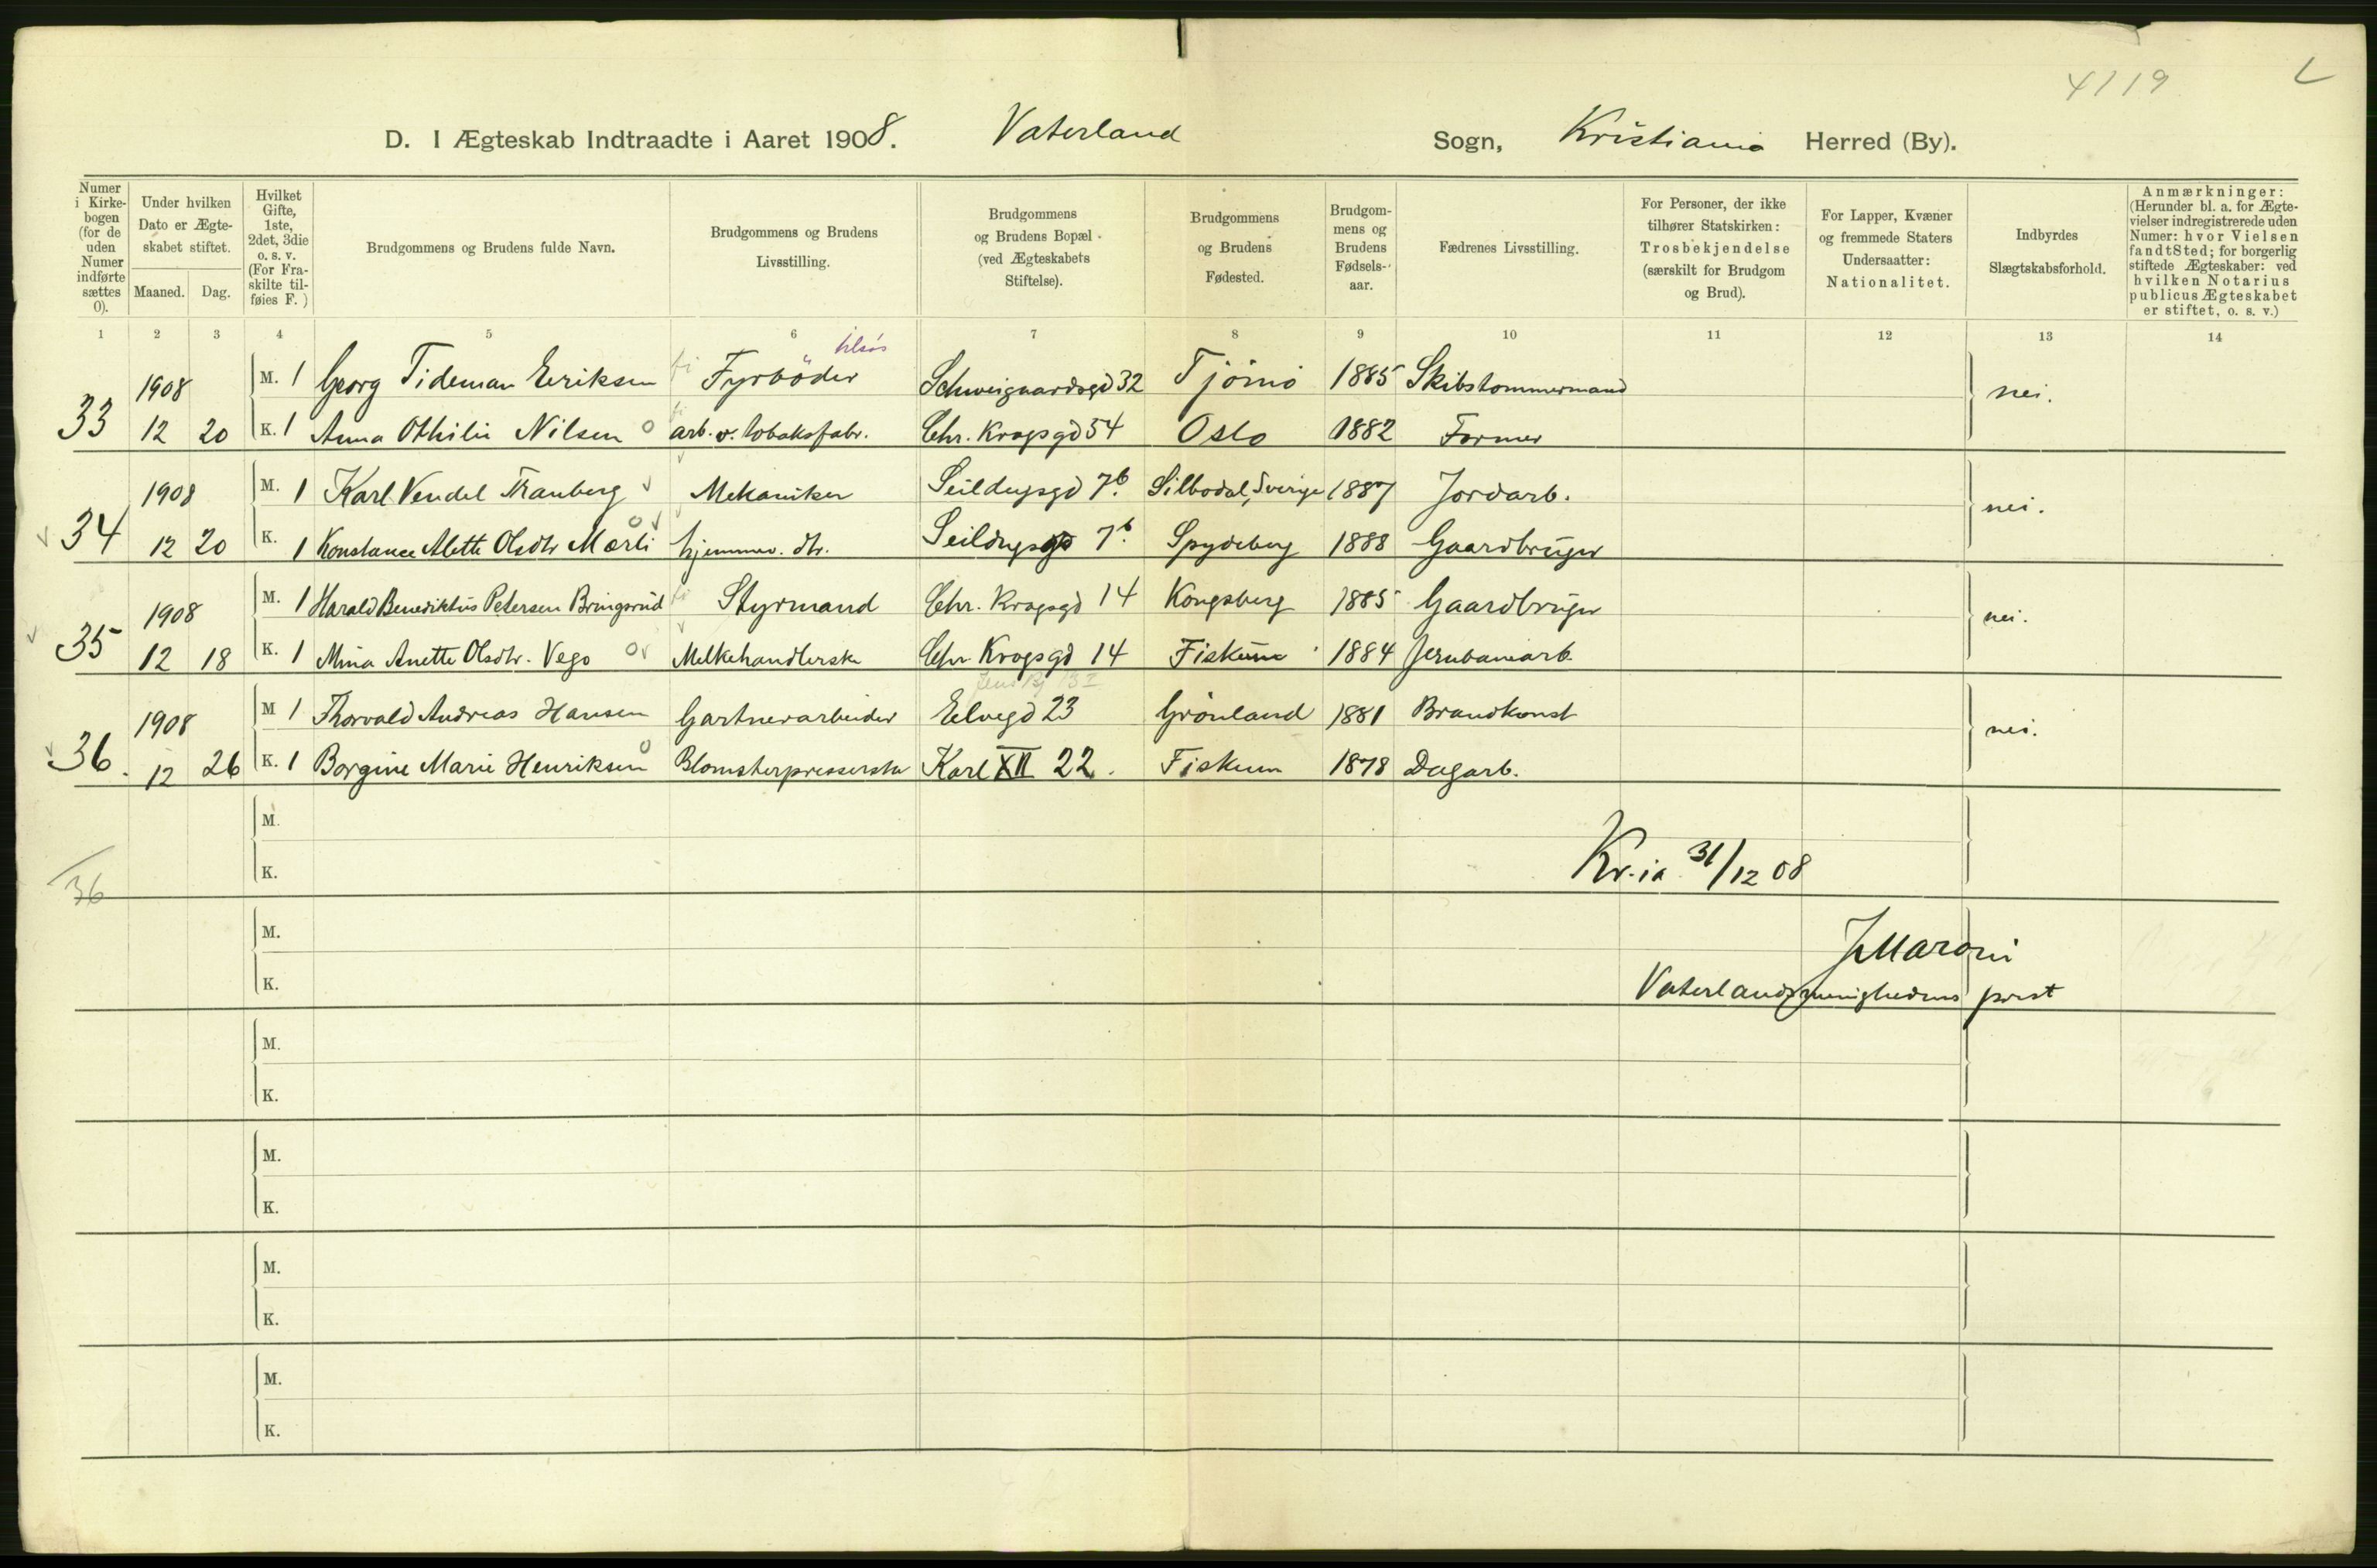 4119
D. I Ægteskab Indtraadte i Aaret 1908. Vaterland Sogn, Kristiania Herred (By).
Numer i Kirkebogen (for de uden Numer indførte sættes 0).
Under hvilken Dato er Ægteskabet stiftet.
Maaned. Dag.
Hvilket Gifte, 1ste, 2det, 3die o. s. v. (For Fraskilte tilføies F.)
Brudgommens og Brudens fulde Navn.
Brudgommens og Brudens Livsstilling.
Brudgommens og Brudens Bopæl (ved Ægteskabets Stiftelse).
Brudgommens og Brudens Fødested.
Brudgommens og Brudens Fødselsaar.
Fædrenes Livsstilling.
For Personer, der ikke tilhører Statskirken: Trosbekjendelse (særskilt for Brudgom og Brud).
For Lapper, Kvæner og fremmede Staters Undersaatter: Nationalitet.
Indbyrdes Slægtskabsforhold.
Anmærkninger: (Herunder bl. a. for Ægtevielser indregistrerede uden Numer: hvor Vielsen fandt Sted; for borgerlig stiftede Ægteskaber: ved hvilken Notarius publicus Ægteskabet er stiftet, o. s. v.)
1 2 3 4 5 6 7 8 9 10 11 12 13 14
tilsøs
1908 M. 1 Georg Tideman Eeriksen Fyrböder Schweigaardsgd 32 Tjömö 1885 Skibstømmermand nei.
33 12 20 K. 1 Anna Othilie Nilsen arb. v. tobaksfabr. Chr. Krogsgd 54 Oslo 1882 Former
1908 M. 1 Karl Vendel Tranberg Mekaniker Seildugsgd 7b. Silbodal, Sverige 1887 Jordarb. nei.
34 12 20 K. 1 Konstance Alette Olsdtr Mørli hjemmev. dtr. Seildugsgd 7b. Spydeberg 1888 Gaardbruger
1908 M. 1 Harald Benediktus Petersen Bringsrud Styrmand Chr. Krogsgd 14 Kongsberg 1885 Gaardbruger nei.
35 12 18 K. 1 Mina Anette Olsdtr. Vego Melkehandlerske Chr Krogsgd 14 Fiskum 1884 Jernbanearb.
1908 M 1 Thorvald Andreas Hansen Gartnerarbeider Elvegd 23 Grönland 1881 Brandkonst nei.
36. 12 26 K. 1 Borgine Marie Henriksen Blomsterpresserske Karl XII 22. Fiskum 1878 Dagarb.
M.
Kr.ia 31/12 08
K.
36
M.
J Maroni
K.
Vaterlandsmenighedens prest
M.
K.
M.
K.
M.
K.
M.
K.